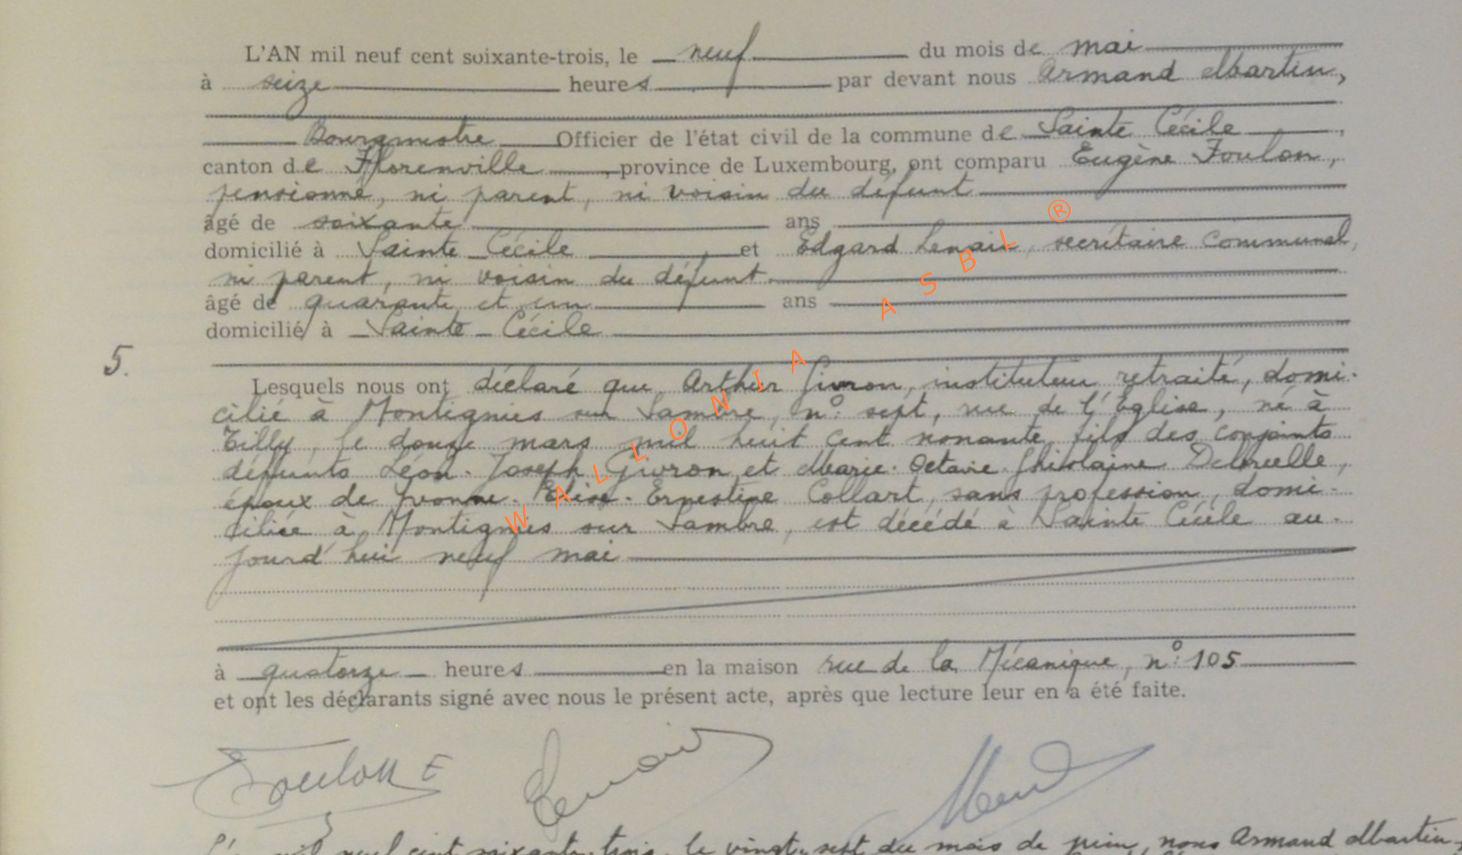 L'AN mil neuf cent soixante-trois, le neuf du mois de mai
à seize heures par devant nous Armand Martin,
Bourgmestre Officier de l'état civil de la commune de Sainte Cécile,
canton de Florenville, province de Luxembourg, ont comparu Eugène Foulon,
pensionné, ni parent, ni voisin du défunt
âgé de soixante ans
®
domicilié à Sainte Cécile et Edgard Lenoir, secrétaire communal,
ni parent, ni voisin du défunt.
âgé de quarante et un ans
domicilié à Sainte-Cécile
5.
Lesquels nous ont déclaré que Arthur Givron, instituteur retraité, domi-
cilié à Montignies sur Sambre, n° sept, rue de l'Eglise, né à
Tilly, le douze mars mil huit cent nonante, fils des conjoints
défunts Léon-Joseph Givron et Marie-Octavie-Ghislaine
époux de Yvonne-Elise-Ernestine Collart, sans profession, domi-
ciliée à Montignies sur Sambre, est décédé à Sainte Cécile au-
jourd'hui neuf mai
à quatorze heures en la maison rue de la Mécanique, n° 105
et ont les déclarants signé avec nous le présent acte, après que lecture leur en a été faite.
WALLONIA ASBL
Foulon E Lenoir
L'an mil neuf cent soixante-trois, le vingt-sept du mois de juin, nous Armand Martin,